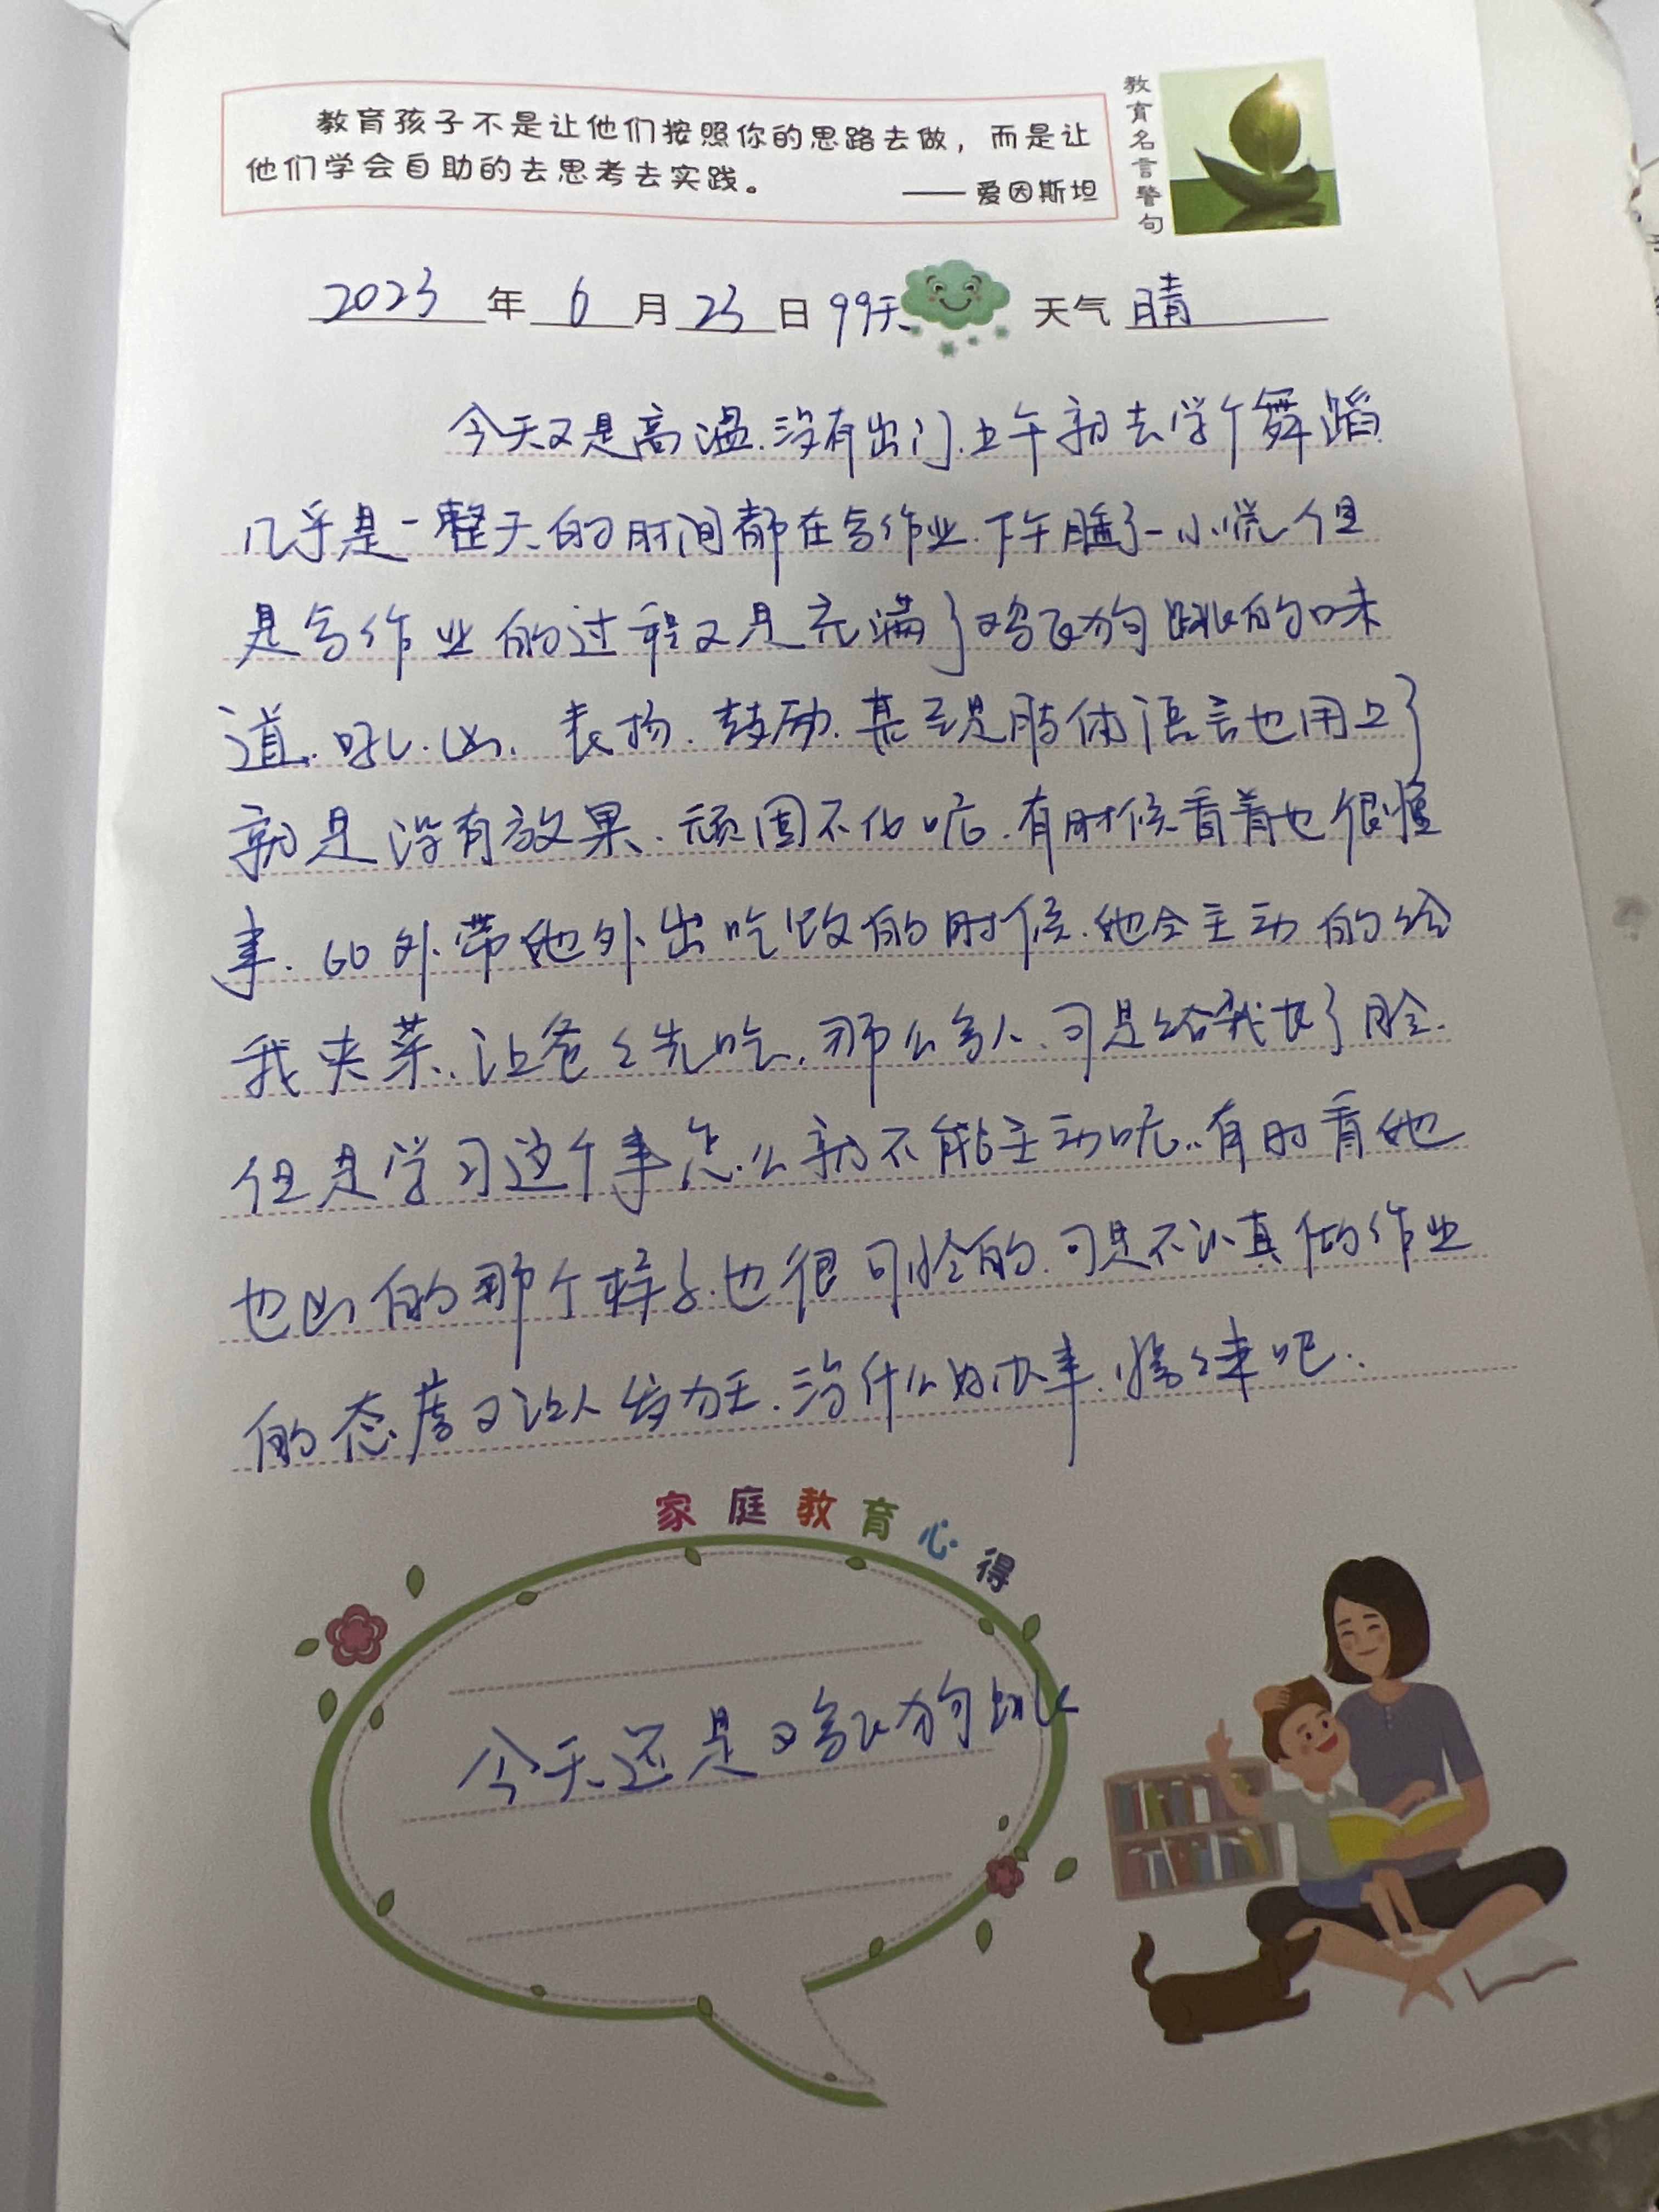 教育孩子不是让他们按照你的思路去做，而是让
他们学会自助的去思考去实践。
——爱因斯坦
教育名言警句
2023年6月23日 99天 天气 晴
今天又是高温.没有出门.上午就去学个舞蹈
几乎是一整天的时间都在写作业.下午睡了一小觉.但
是写作业的过程又是充满了鸡飞狗跳的味
道.吼.凶.表扬.鼓励.甚至是肢体语言也用上了
就是没有效果.顽固不化呢.有时候看着也很懂
事.带她外出吃饭的时候.她会主动的给
我夹菜.让爸爸先吃.那么多人.可是给我长了脸.
但是学习这个事怎么就不能主动呢..有时看她
也凶的那个样子.也很可怜的.可是不认真做作业
的态度又让人发力王.没什么好办事.慢慢来吧..
家庭教育心得
今天还是鸡飞狗跳